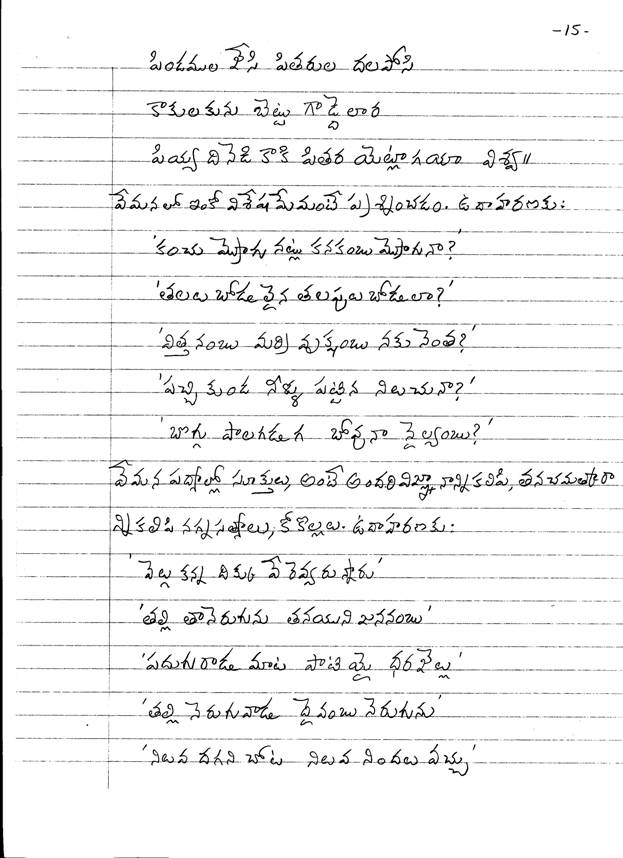 -15-
పిండముల జేసి పితరుల దలపోసి
కాకులకును బెట్టు గాడ్దెలార
పియ్య దినెడి కాకి పితర యెట్లాగయా విశ్వ॥
వేమనలో ఇంకో విశేషమేమంటే ప్రశ్నించడం. ఉదాహరణకు:
'కంచు మ్రోగు నట్లు కనకంబు మ్రోగునా?'
'తలలు బోడులైన తలపులు బోడులా?'
'విత్తనంబు మర్రి వృక్షంబు నకు నెంత?'
'పచ్చి కుండ నీళ్ళు పట్టిన నిలుచునా?'
'బొగ్గు పాలగడుగ బోవునా నైల్యంబు?'
వేమన పద్యాల్లో సూక్తులు, అంటే అందరి విజ్ఞానాన్ని కలిపి, తన చమత్కారా
న్ని కలిపి నగ్నసత్యాలు, కోకొల్లలు. ఉదాహరణకు:
'పెల్ల కన్న దిక్కు వేరెవ్వరున్నారు'
'తల్లి తానెరుగును తనయుని జననంబు'
'పదుగురాడు మాట పాటియై ధరజెల్లు'
'తల్లి నెరుగువాడు దైవంబు నెరుగును'
'నిలువ దగని చోట నిలువ నిందలు వచ్చు'